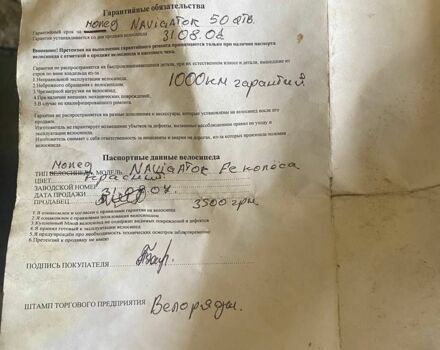 Гарантийные обязательства
Гарантийный срок на мопед NAViGATOR 50
Гарантия устанавливается со дня продажи велосипеда 31.08.06
Внимание! Претензии на выполнение гарантийного ремонта принимаются только при наличии паспорта
велосипеда с отметкой о продаже велосипеда и кассового чека.
Гарантия не распространяется на быстроизнашивающиеся детали, при их естественном износе и детали, вышедшие из
строя по вине владельца из-за
1.Неправильной эксплуатации велосипеда.
2.Небрежного обращения с велосипедом.
3.Чрезмерной нагрузки на велосипед.
4.При наличии внешних механических повреждений.
5.В случае не квалифицированного ремонта.
1000км гарантий
Гарантия не распространяется на разные дополнения и аксессуары, которые установлены на велосипед после его
продажи.
Изготовитель не гарантирует возмещение убытков за дефекты, вызванные несоблюдением правил по уходу и
эксплуатации велосипеда.
Изготовитель снимает с себя ответственность за инциденты и аварии на дорогах, из-за которых произошла поломка
велосипеда.
Паспортные данные велосипеда
мопед
ТИП ВЕЛОСИПЕДА, МОДЕЛЬ NAViGATOR
ЦВЕТ красный
ЗАВОДСКОЙ НОМЕР
ДАТА ПРОДАЖИ
ПРОДАВЕЦ 3500 грн
1.Я ознакомлен и согласен с правилами гарантии на велосипед
2.Я ознакомлен с правилами пользования велосипедом
3.Купленный мной велосипед не содержит видимых повреждений и дефектов
4.Я принял готовый к эксплуатации велосипед
5.Я предупреждён про необходимость технических осмотров
6.Претензий к продавцу не имею
ПОДПИСЬ ПОКУПАТЕЛЯ
ШТАМП ТОРГОВОГО ПРЕДПРИЯТИЯ